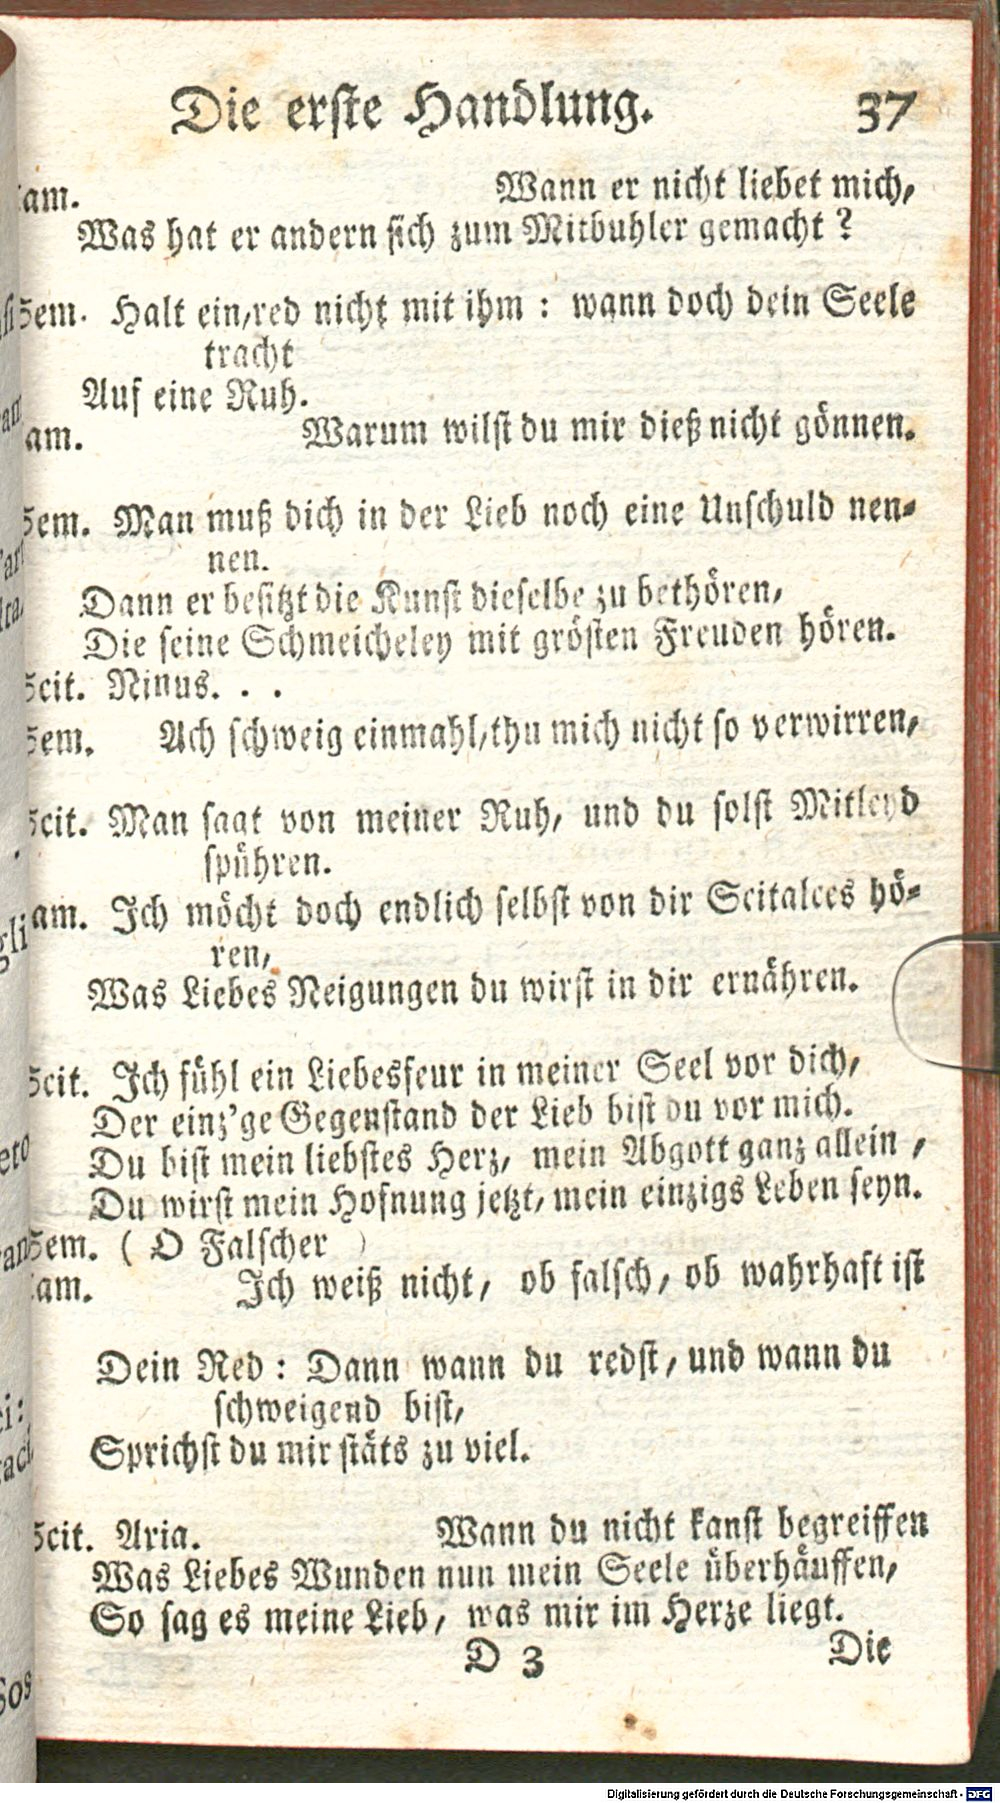 Die erste Handlung. 37
am. Wann er nicht liebet mich,
Was hat er andern sich zum Mitbuhler gemacht?
Sem. Halt ein, red nicht mit ihm: wann doch dein Seele
tracht
Auf eine Ruh.
am. Warum wilst du mir dieß nicht gönnen.
Sem. Man muß dich in der Lieb noch eine Unschuld nen-
nen.
Dann er besitzt die Kunst dieselbe zu bethören,
Die seine Schmeicheley mit grösten Freuden hören.
Scit. Ninus. . .
Sem. Ach schweig einmahl, thu mich nicht so verwirren,
Scit. Man sagt von meiner Ruh, und du solst Mitleyd
spühren.
am. Ich möcht doch endlich selbst von dir Scitalces hö-
ren,
Was Liebes Neigungen du wirst in dir ernähren.
Scit. Ich fühl ein Liebesfeur in meiner Seel vor dich,
Der einz'ge Gegenstand der Lieb bist du vor mich.
Du bist mein liebstes Herz, mein Abgott ganz allein,
Du wirst mein Hofnung jetzt, mein einzigs Leben seyn.
Sem. (O Falscher)
am. Ich weiß nicht, ob falsch, ob wahrhaft ist
Dein Red: Dann wann du redst, und wann du
schweigend bist,
Sprichst du mir stäts zu viel.
Scit. Aria. Wann du nicht kanst begreiffen
Was Liebes Wunden nun mein Seele überhäuffen,
So sag es meine Lieb, was mir im Herze liegt.
D 3 Die
Digitalisierung gefördert durch die Deutsche Forschungsgemeinschaft - DFG